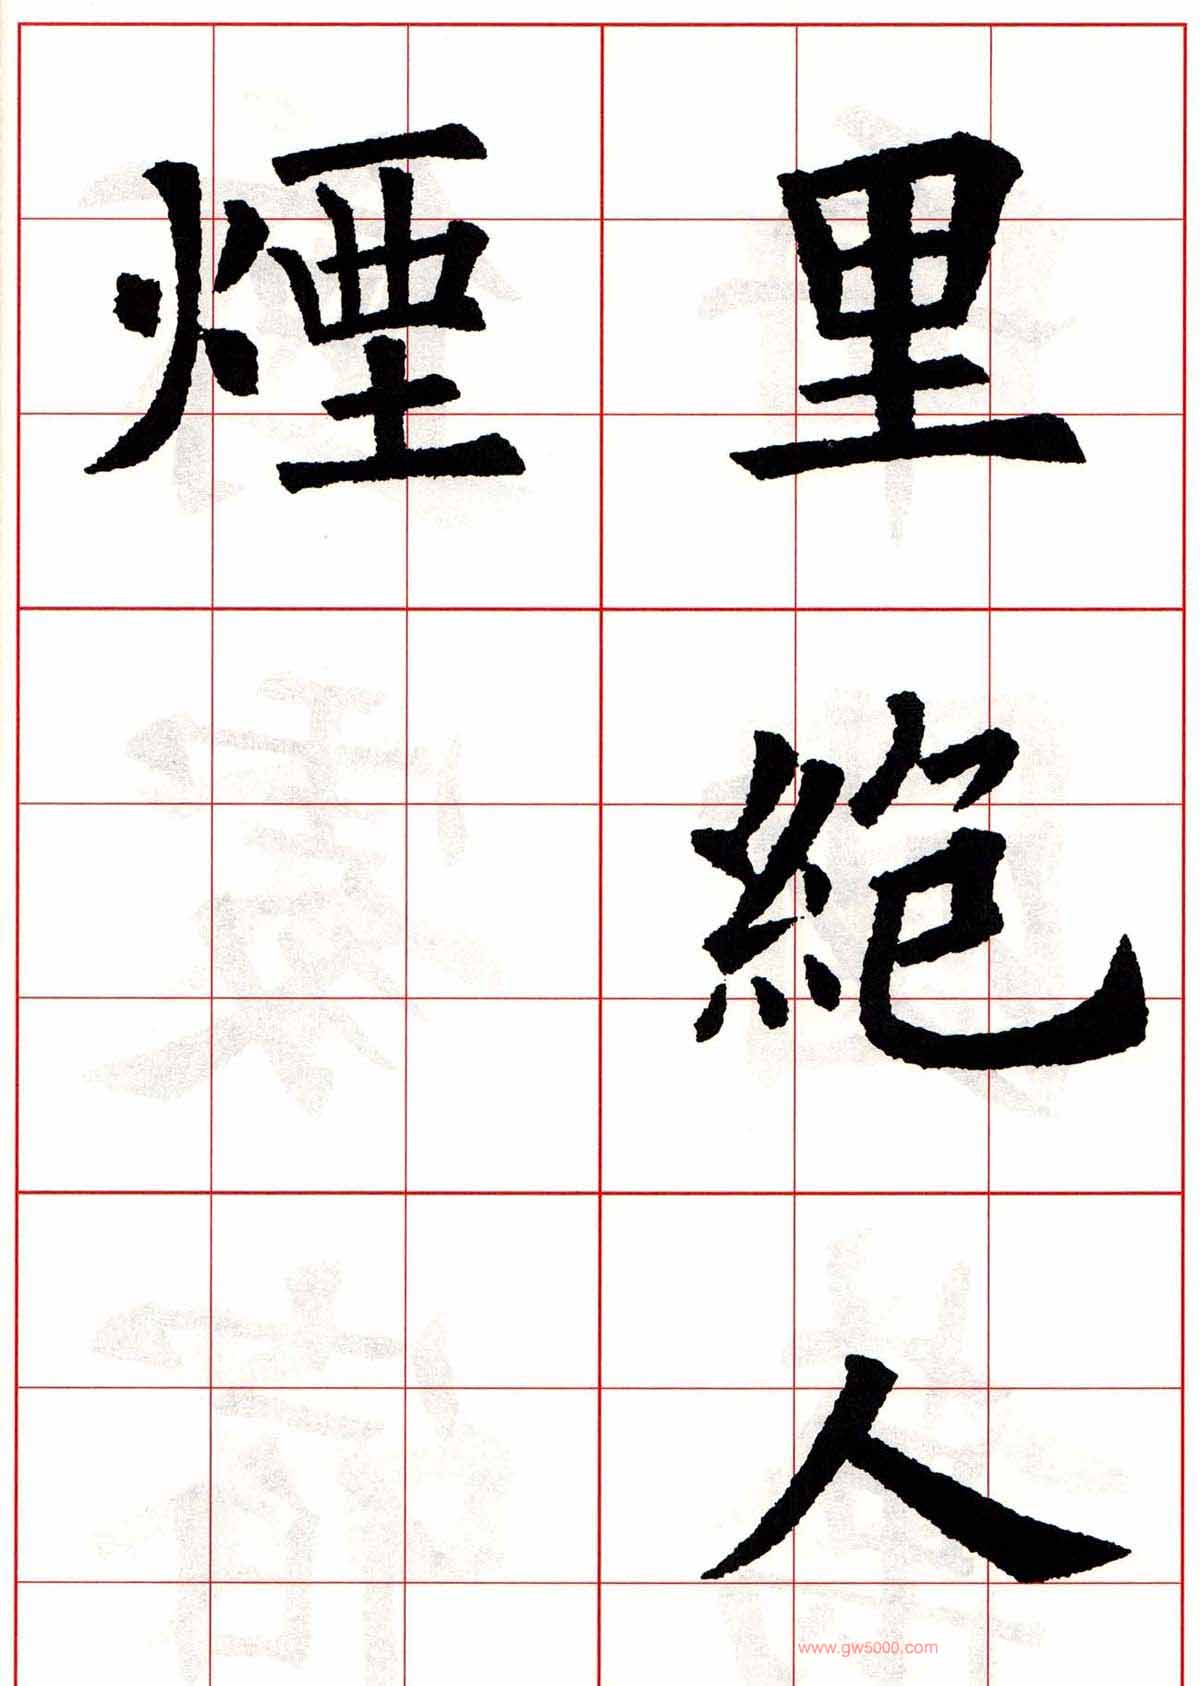 里絕人
煙
www.gw5000.com